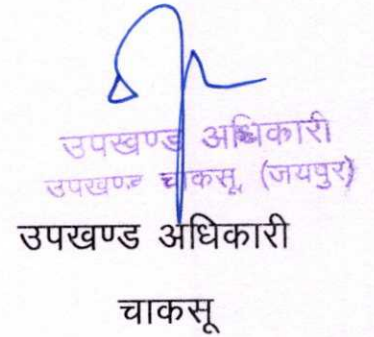 उपखण्ड अधिकारी
उपखण्ड चाकसू, (जयपुर)
उपखण्ड अधिकारी
चाकसू